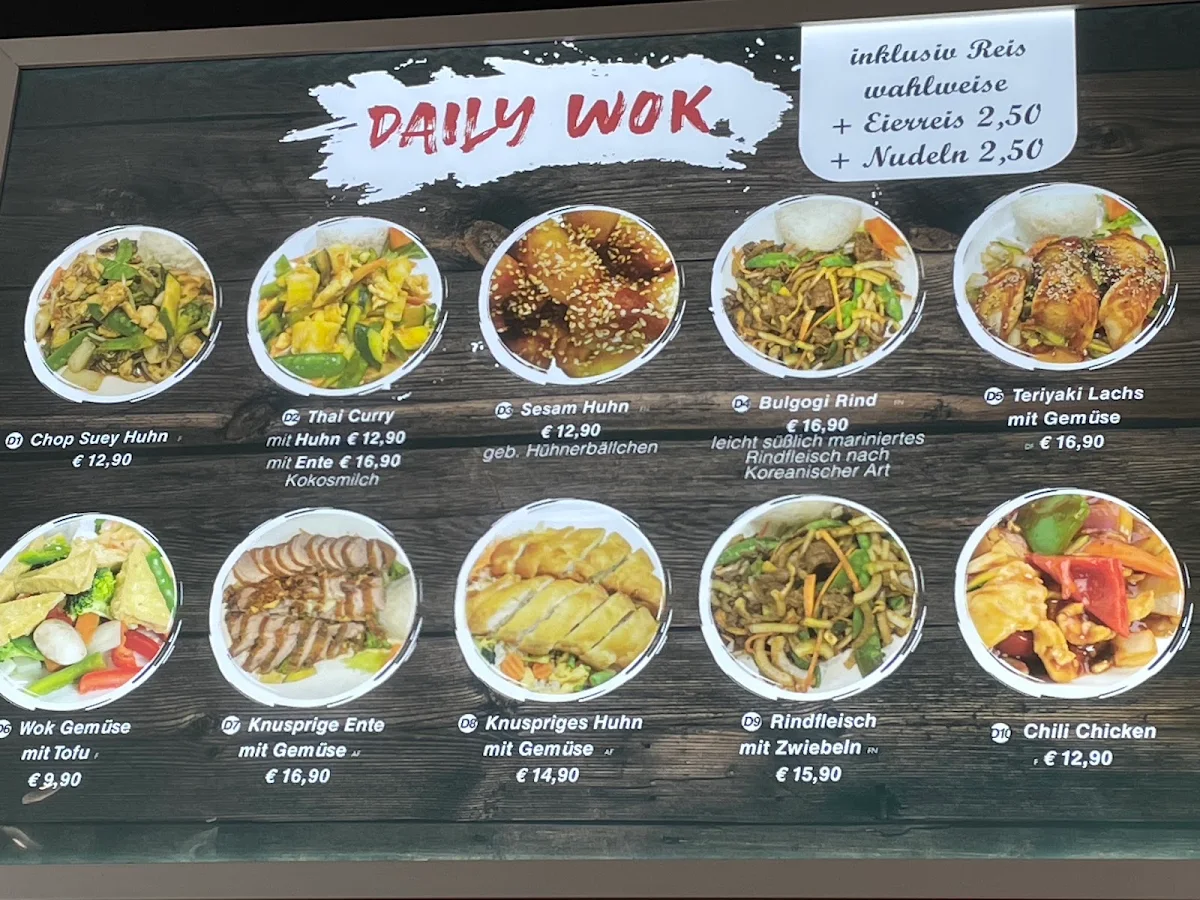 DAILY WOK
inklusiv Reis
wahlweise
+ Eierreis 2,50
+ Nudeln 2,50
D1 Chop Suey Huhn F
€ 12,90
D2 Thai Curry
mit Huhn € 12,90
mit Ente € 16,90
Kokosmilch
D3 Sesam Huhn FN
€ 12,90
geb. Hühnerbällchen
D4 Bulgogi Rind FN
€ 16,90
leicht süßlich mariniertes
Rindfleisch nach
Koreanischer Art
D5 Teriyaki Lachs
mit Gemüse
DF € 16,90
D6 Wok Gemüse
mit Tofu F
€ 9,90
D7 Knusprige Ente
mit Gemüse AF
€ 16,90
D8 Knuspriges Huhn
mit Gemüse AF
€ 14,90
D9 Rindfleisch
mit Zwiebeln FN
€ 15,90
D10 Chili Chicken
F € 12,90